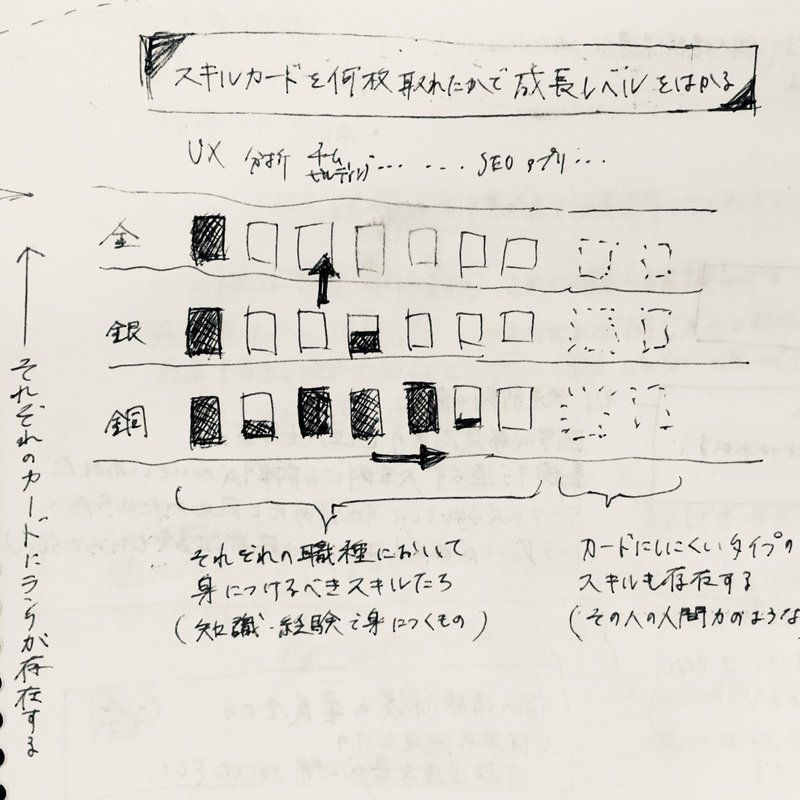 スキルカードを何枚取れたかで成長レベルをはかる
UX 分析 チームビルディング… … SEO アプリ…
金
銀
銅
それぞれのカードにランクが存在する
それぞれの職種において
身につけるべきスキルたち
(知識・経験で身につくもの)
カードにしにくいタイプの
スキルも存在する
(その人の人間力のような